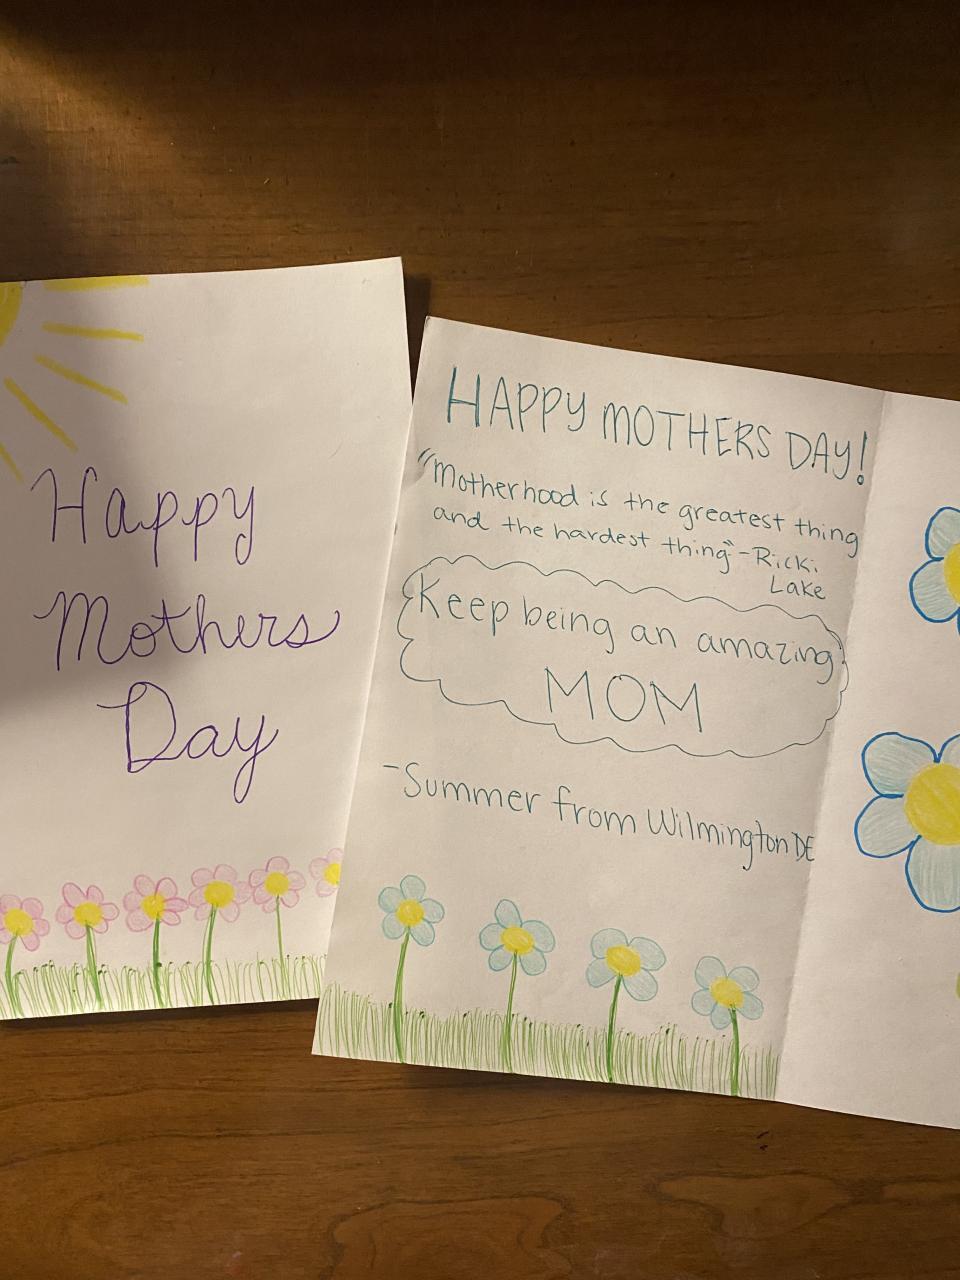 Happy
Mothers
Day
HAPPY MOTHERS DAY!
"Motherhood is the greatest thing
and the hardest thing" -Ricki
Lake
Keep being an amazing
MOM
-Summer from Wilmington DE